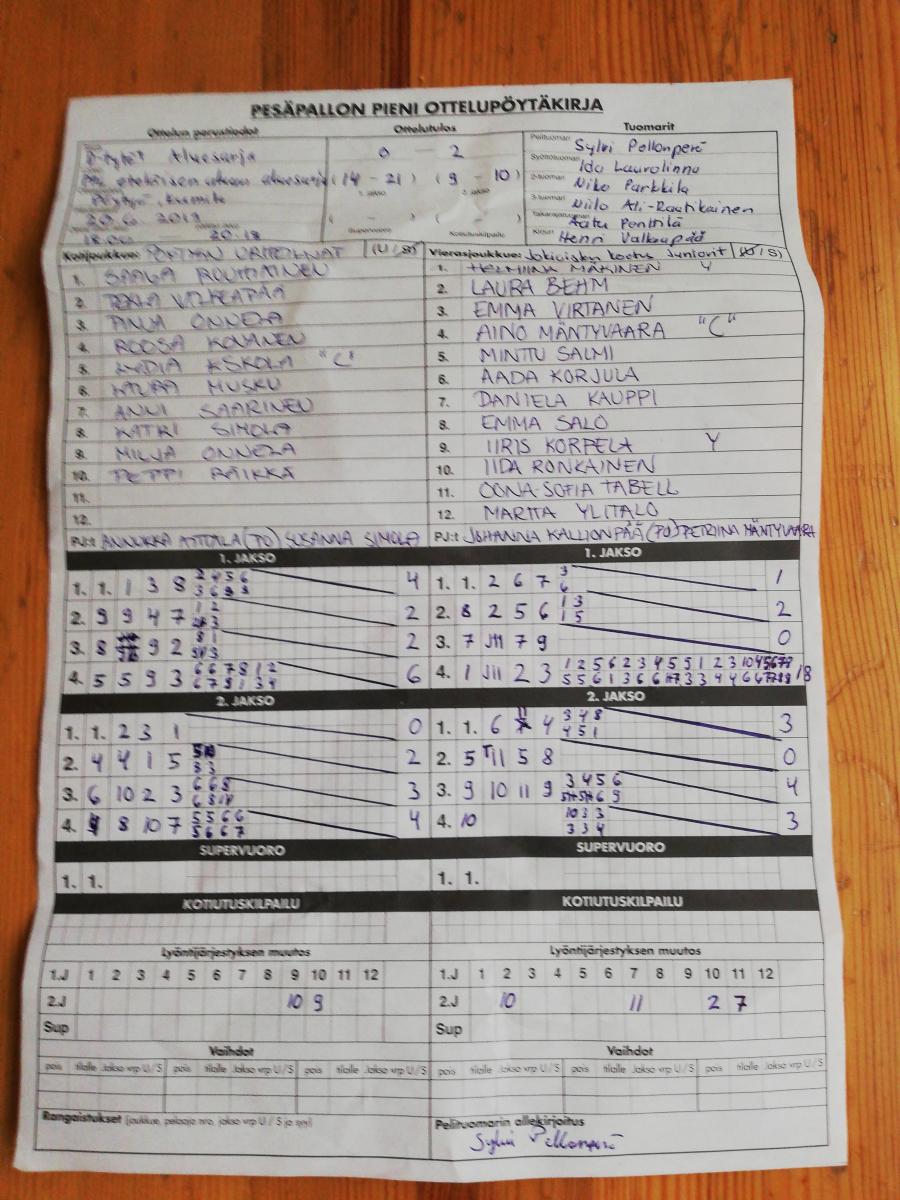 PESÄPALLON PIENI OTTELUPÖYTÄKIRJA
Ottelun perustiedot Ottelutulos Tuomarit
D-tytöt Aluesarja 0 - 2 Pelituomari Sylvi Pellonperä
aluesarja (14 - 21) (9 - 10) Syöttötuomari Ida Laurolinna
1. jakso 2. jakso 2-tuomari Niko Parkkila
Kumila 3-tuomari Niilo Ali-Rautikainen
20.6.2019 ( - ) ( - ) Takarajatuomari Aatu Penttilä
18.00 20.18 Supervuoro Kotiutuskilpailu Kirjuri Henri Valkapää
Kotijoukkue: PÖYTYÄN URHEILIJAT (U / S)
1.
2. VALKEAPÄÄ
3. PINJA ONNELA
4. ROOSA KOVANEN
5. LYDIA ESKOLA "C"
6. LAURA MUSKU
7. ANNI SAARINEN
8. KATRI SIMOLA
9. MILJA ONNELA
10. PEPPI RÄIKKÄ
11.
12.
PJ:t ANNUKKA (PO) SUSANNA SIMOLA
Vierasjoukkue: Jokioisten Koetus Juniorit (U / S)
1. HELMIINA MÄKINEN Y
2. LAURA BEHM
3. EMMA VIRTANEN
4. AINO MÄNTYVAARA "C"
5. MINTTU SALMI
6. AADA KORJULA
7. DANIELA KAUPPI
8. EMMA SALO
9. IIRIS KORPELA Y
10. IIDA RONKAINEN
11. OONA-SOFIA TABELL
12. MARTTA YLITALO
PJ:t JOHANNA KALLIONPÄÄ (PO) PETRIINA MÄNTYVAARA
1. JAKSO 1. JAKSO
1. 1. 1 3 8 4 1. 1. 2 6 7 3 6 1
2. 9 9 4 7 2 2. 8 2 5 6 1 3 1 5 2
3. 8 9 2 2 3. 7 7 9 0
4. 5 5 9 3 6 6 7 8 1 2 6 7 9 1 3 4 6 4. 1 2 3 18
2. JAKSO 2. JAKSO
1. 1. 2 3 1 0 1. 1. 6 4 3 4 8 4 5 1 3
2. 4 4 1 5 3 3 2 2. 5 11 5 8 0
3. 6 10 2 3 6 6 8 3 3. 9 10 11 9 3 4 5 6 4
4. 8 10 7 5 5 6 6 5 6 6 7 4 4. 10 10 3 3 3 3 4 3
SUPERVUORO SUPERVUORO
1. 1. 1. 1.
KOTIUTUSKILPAILU KOTIUTUSKILPAILU
Lyöntijärjestyksen muutos Lyöntijärjestyksen muutos
1.J 1 2 3 4 5 6 7 8 9 10 11 12 1.J 1 2 3 4 5 6 7 8 9 10 11 12
2.J 10 9 2.J 10 11 2 7
Sup Sup
Vaihdot Vaihdot
pois tilalle Jakso vrp U / S pois tilalle Jakso vrp U / S pois tilalle Jakso vrp U / S pois tilalle Jakso vrp U / S pois tilalle Jakso vrp U / S pois tilalle Jakso vrp U / S
Rangaistukset (joukkue, pelaaja nro, jakso vrp U / S ja syy) Pelituomarin allekirjoitus
Sylvi Pellonperä